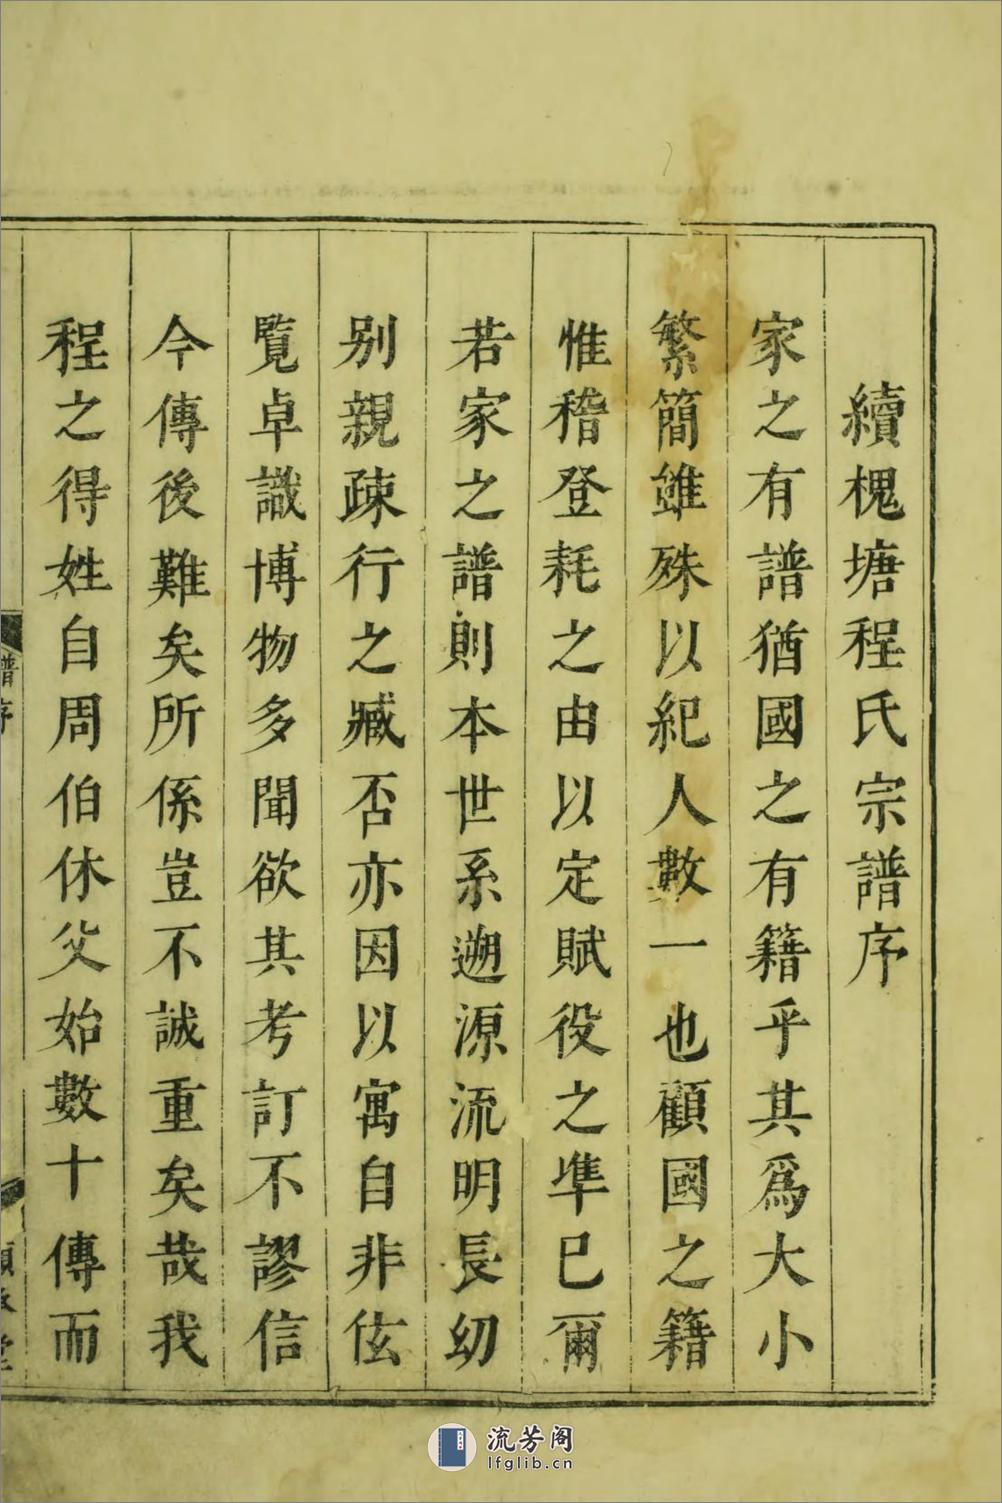 續槐塘程氏宗譜序
家之有譜猶國之有籍乎其爲大小
繁簡雖殊以紀人數一也顧國之籍
惟稽登耗之由以定賦役之凖已爾
若家之譜則本世系遡源流明長幼
别親疎行之臧否亦因以寓自非伭
覽卓識博物多聞欲其考訂不謬信
今傳後難矣所係豈不誠重矣哉我
程之得姓自周伯休父始數十傳而
譜序
流芳阁
lfglib.cn